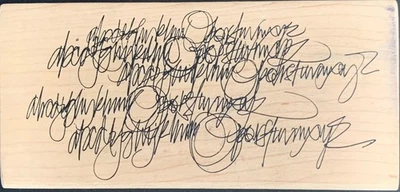 abcdefghijklmnopqrstuvwxyz
abcdefghijklmnopqrstuvwxyz
abcdefghijklmnopqrstuvwxyz
abcdefghijklmnopqrstuvwxyz
abcdefghijklmnopqrstuvwxyz